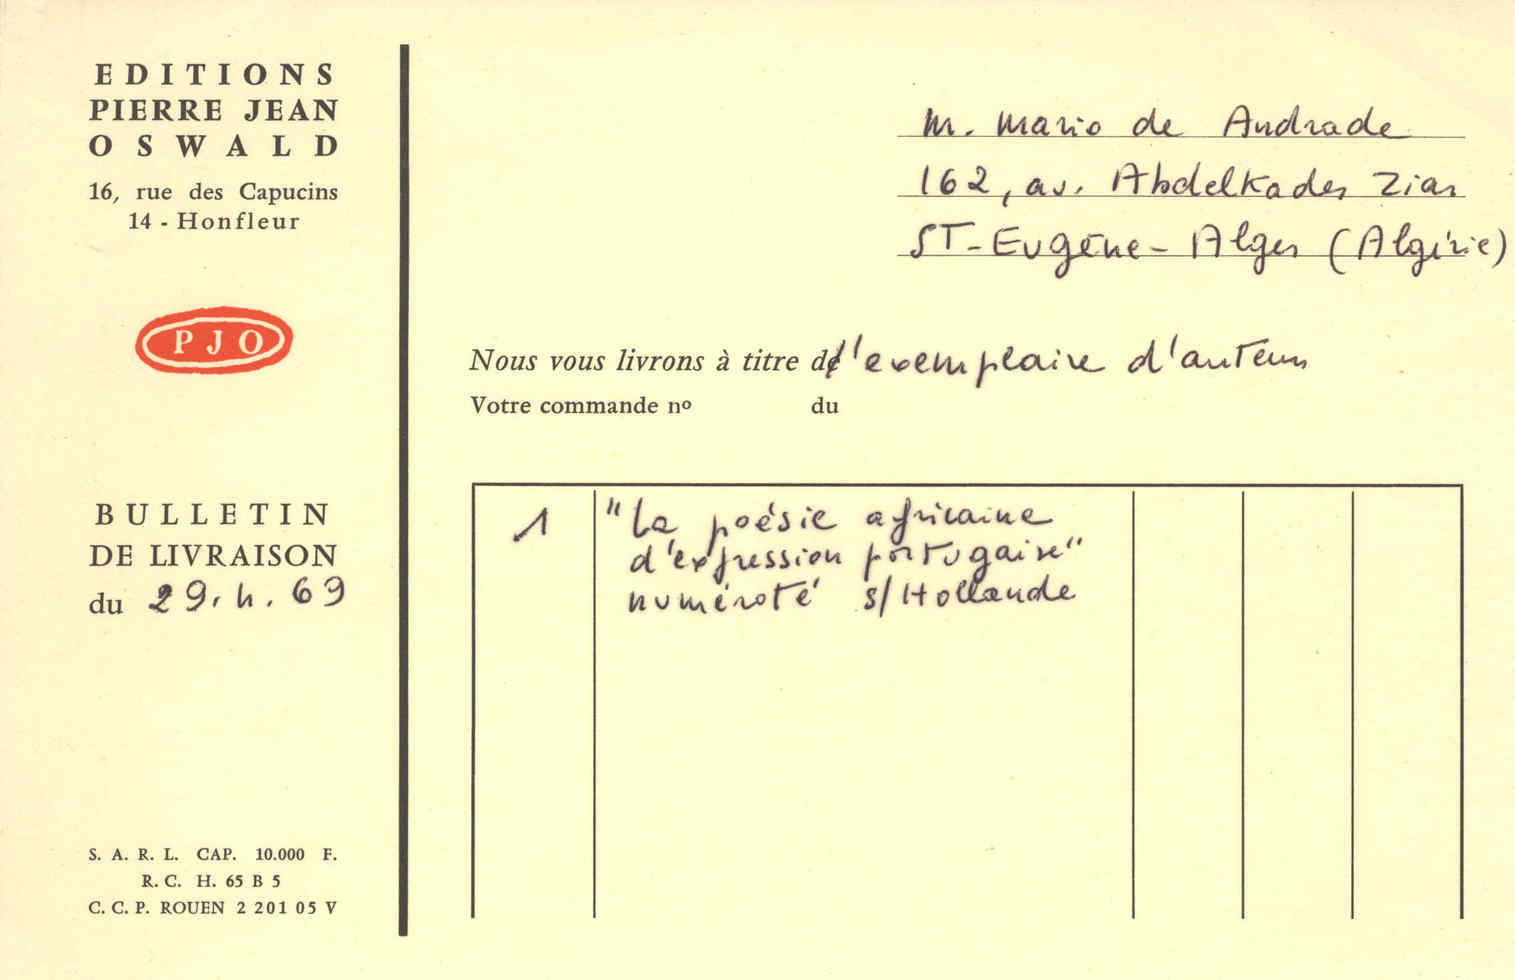 EDITIONS
PIERRE JEAN
OSWALD
16, rue des Capucins
14 - Honfleur
PJO
BULLETIN
DE LIVRAISON
du 29. 4. 69
S. A. R. L. CAP. 10.000 F.
R. C. H. 65 B 5
C. C. P. ROUEN 2 201 05 V
M. Mario de Andrade
162, av. AbdelKader Ziar
ST-Eugène - Alger (Algérie)
Nous vous livrons à titre d'exemplaire d'auteur
Votre commande nº du
1 "La poésie africaine
d'expression portugaise"
numéroté s/Hollande